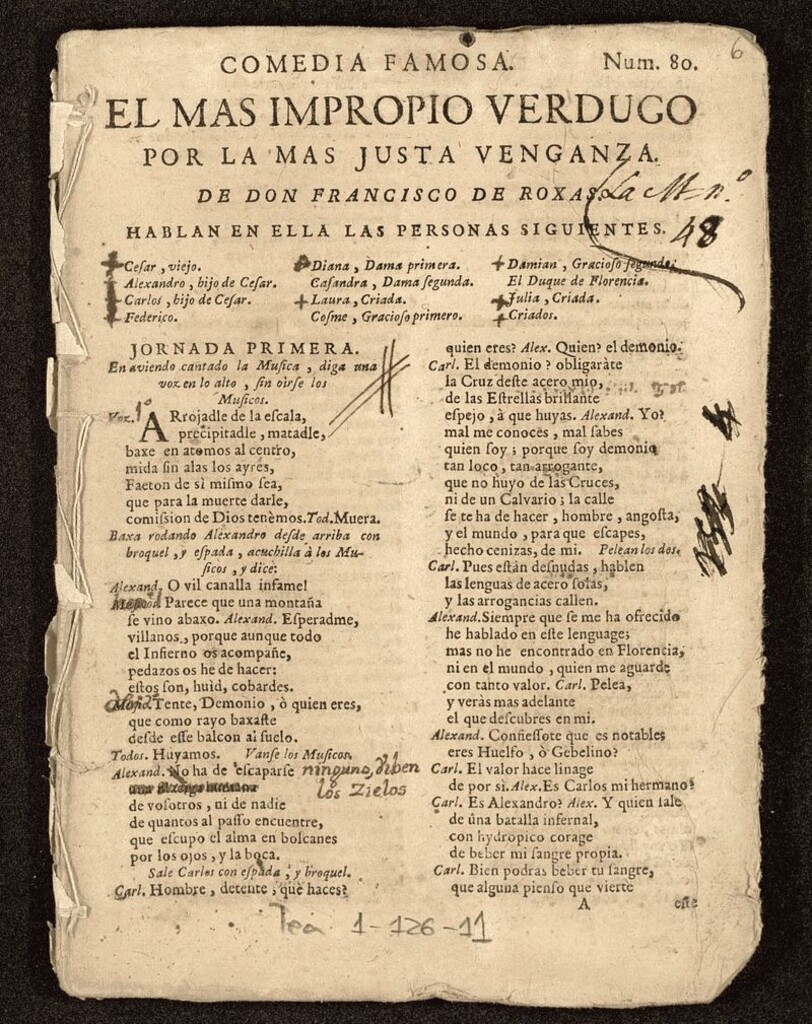 6
COMEDIA FAMOSA. Num. 80.
EL MAS IMPROPIO VERDUGO
POR LA MAS JUSTA VENGANZA.
DE DON FRANCISCO DE ROXAS.
La M n.º
48
HABLAN EN ELLA LAS PERSONAS SIGUIENTES.
Ceſar, viejo.
Alexandro, hijo de Ceſar.
Carlos, hijo de Ceſar.
Federico.
Diana, Dama primera.
Caſandra, Dama ſegunda.
Laura, Criada.
Coſme, Gracioſo primero.
Damian, Gracioſo ſegundo.
El Duque de Florencia.
Julia, Criada.
Criados.
JORNADA PRIMERA.
En aviendo cantado la Muſica, diga una
voz en lo alto, ſin oirſe los
Muſicos.
Voz. 1º ARrojadle de la eſcala,
precipitadle, matadle,
baxe en atomos al centro,
mida ſin alas los ayres,
Faeton de sì miſmo ſea,
que para la muerte darle,
comiſsion de Dios tenèmos. Tod. Muera.
Baxa rodando Alexandro deſde arriba con
broquel, y eſpada, acuchilla à los Mu-
ſicos, y dice:
Alexand. O vil canalla infame!
Parece que una montaña
ſe vino abaxo. Alexand. Eſperadme,
villanos, porque aunque todo
el Infierno os acompañe,
pedazos os he de hacer:
eſtos ſon, huid, cobardes.
Tente, Demonio, ò quien eres,
que como rayo baxaſte
deſde eſſe balcon al ſuelo.
Todos. Huyamos. Vanſe los Muſicos.
Alexand. No ha de eſcaparſe ninguno, viben
los Zielos
de voſotros, ni de nadie
de quantos al paſſo encuentre,
que eſcupo el alma en bolcanes
por los ojos, y la boca.
Sale Carlos con eſpada, y broquel.
Carl. Hombre, detente, què haces?
quien eres? Alex. Quien? el demonio.
Carl. El demonio? obligaràte
la Cruz deſte acero mio,
de las Eſtrellas brillante
eſpejo, à que huyas. Alexand. Yo?
mal me conoces, mal ſabes
quien ſoy; porque ſoy demonio
tan loco, tan arrogante,
que no huyo de las Cruces,
ni de un Calvario; la calle
ſe te ha de hacer, hombre, angoſta,
y el mundo, para que eſcapes,
hecho cenizas, de mi. Pelean los dos.
Carl. Pues eſtán deſnudas, hablen
las lenguas de acero ſolas,
y las arrogancias callen.
Alexand. Siempre que ſe me ha ofrecido
he hablado en eſte lenguage;
mas no he encontrado en Florencia,
ni en el mundo, quien me aguarde
con tanto valor. Carl. Pelea,
y veràs mas adelante
el que deſcubres en mi.
Alexand. Confieſſote que es notable;
eres Huelfo, ò Gebelino?
Carl. El valor hace linage
de por sì. Alex. Es Carlos mi hermano?
Carl. Es Alexandro? Alex. Y quien ſale
de una batalla infernal,
con hydropico corage
de beber mi ſangre propia.
Carl. Bien podras beber tu ſangre,
que alguna pienſo que vierte
A eſte
Tea 1-126-11